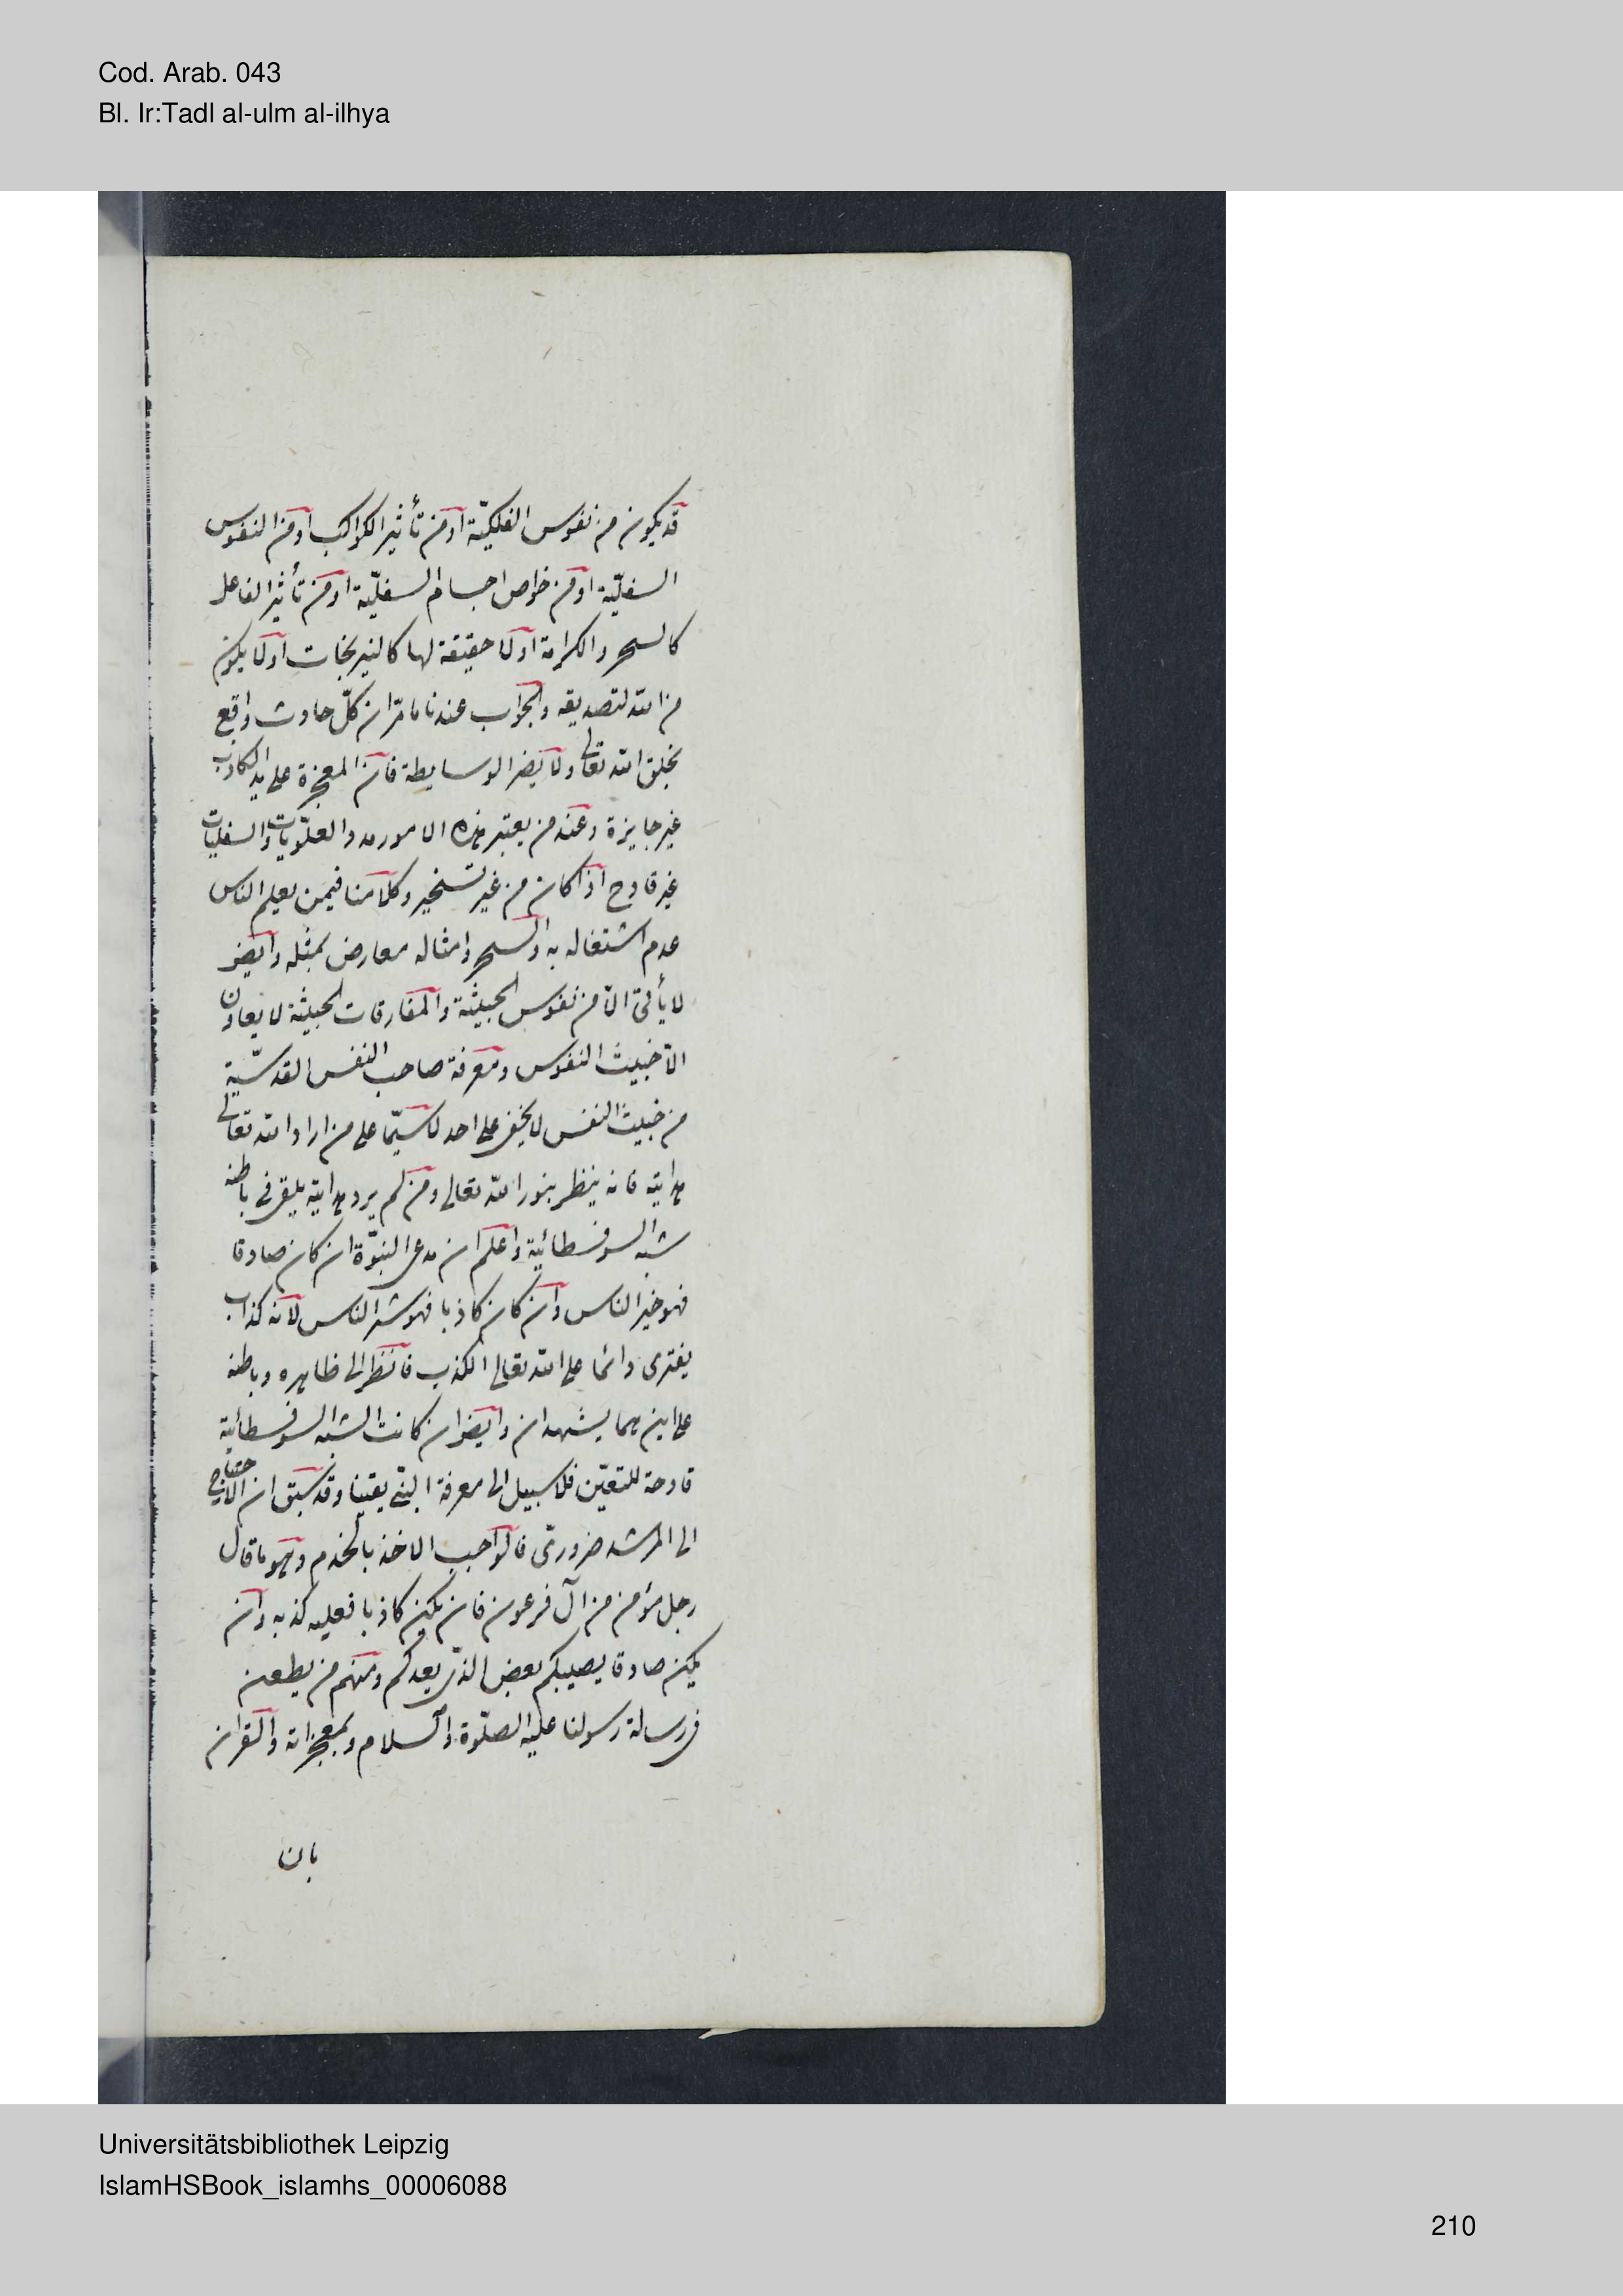 Cod. Arab. 043
Bl. Ir:Tadl al-ulm al-ilhya
قد يكون من نفوس الفلكيّة او من تأثير الكواكب او من النفوس
السفليّة او من خواص اجسام السفليّة او من تأثير الفاعل
كالسحر والكرامة او لا حقيقة لها كالنيرنجات او لا يكون
من الله لتصديقه والجواب عندنا ما مرّ ان كلّ حادث واقع
بخلق الله تعالى ولا يضر الوسايطة فان المعجزة على يد الكاذب
غير جايزة وعند من يعتبر هذه الامور والعلّويات والسفليات
غير قادح اذا كان من غير تسخير وكلامنا فيمن يعلم الناس
عدم اشتغاله به والسحر وامثاله معارض بمثله وايضو
لا يأتى الا من نفوس الخبيثة والمفارقات الخبيثة لا يعاون
الا خبيث النفوس ومعرفة صاحب النفس القدسّية
من خبيث النفس لا يخفى على احد لا سيّما على من اراد الله تعالى
هدايته فانه ينظر بنور الله تعالى ومن لم يرد هدايته يلقى فى باطنه
شبه السوفسطائية واعلم ان مدعى النبوّة ان كان صادقا
فهو خير الناس وان كان كاذبا فهو شر الناس لانه كذاب
يفترى دائما على الله تعالى الكذب فانظر الى ظاهره وباطنه
على اين هما يشهدان وايضو ان كانت الشبه السوفسطائية
قادحة للتعيّن فلا سبيل الى معرفة النبى يقينا وقد سبق ان الاحتياج
الى المرشد ضرورىّ فالواجب الاخذ بالخدم وهو ما قال
رجل مؤمن من آل فرعون فان يكن كاذبا فعليه كذبه وان
يكن صادقا يصيبكم بعض الذى يعدكم ومنهم من يطعن
فى رسالة رسولنا عليه الصلّوة والسلام وبمعجزاته والقران
بان
Universitätsbibliothek Leipzig
IslamHSBook_islamhs_00006088
210